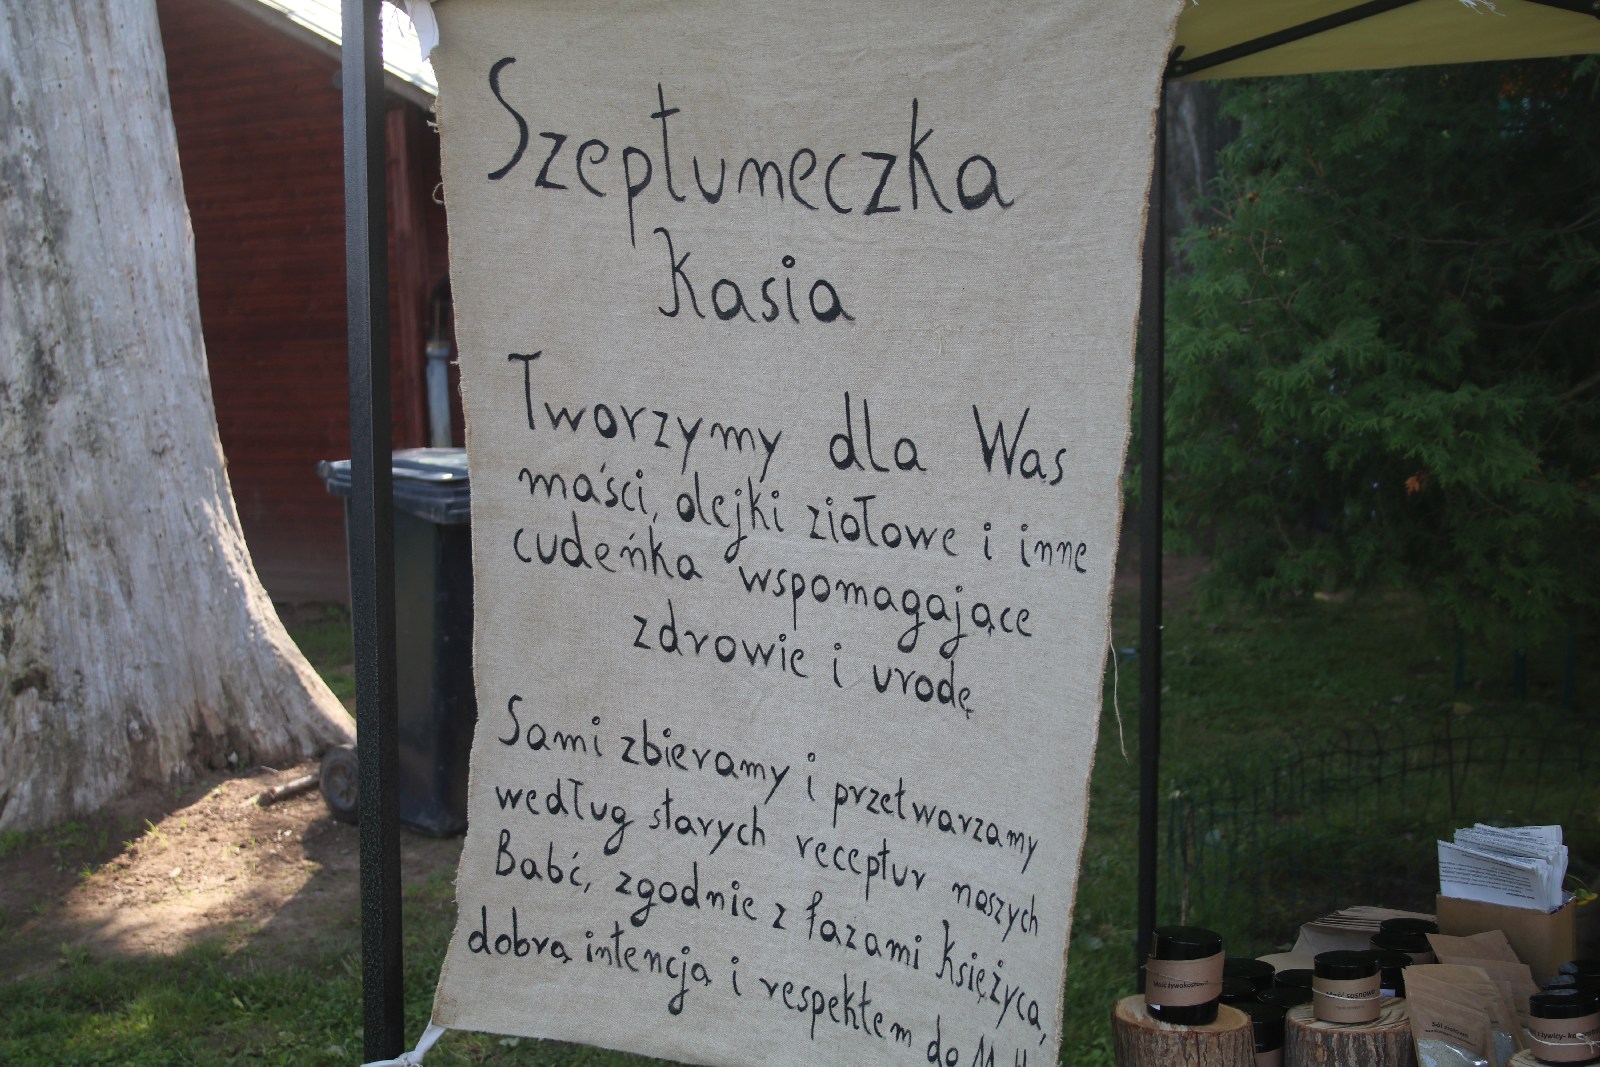 Szeptuneczka
Kasia
Tworzymy dla Was
maści, olejki ziołowe i inne
cudeńka wspomagające
zdrowie i urodę
Sami zbieramy i przetwarzamy
według starych receptur naszych
Babć, zgodnie z fazami Księżyca,
dobrą intencją i respektem do